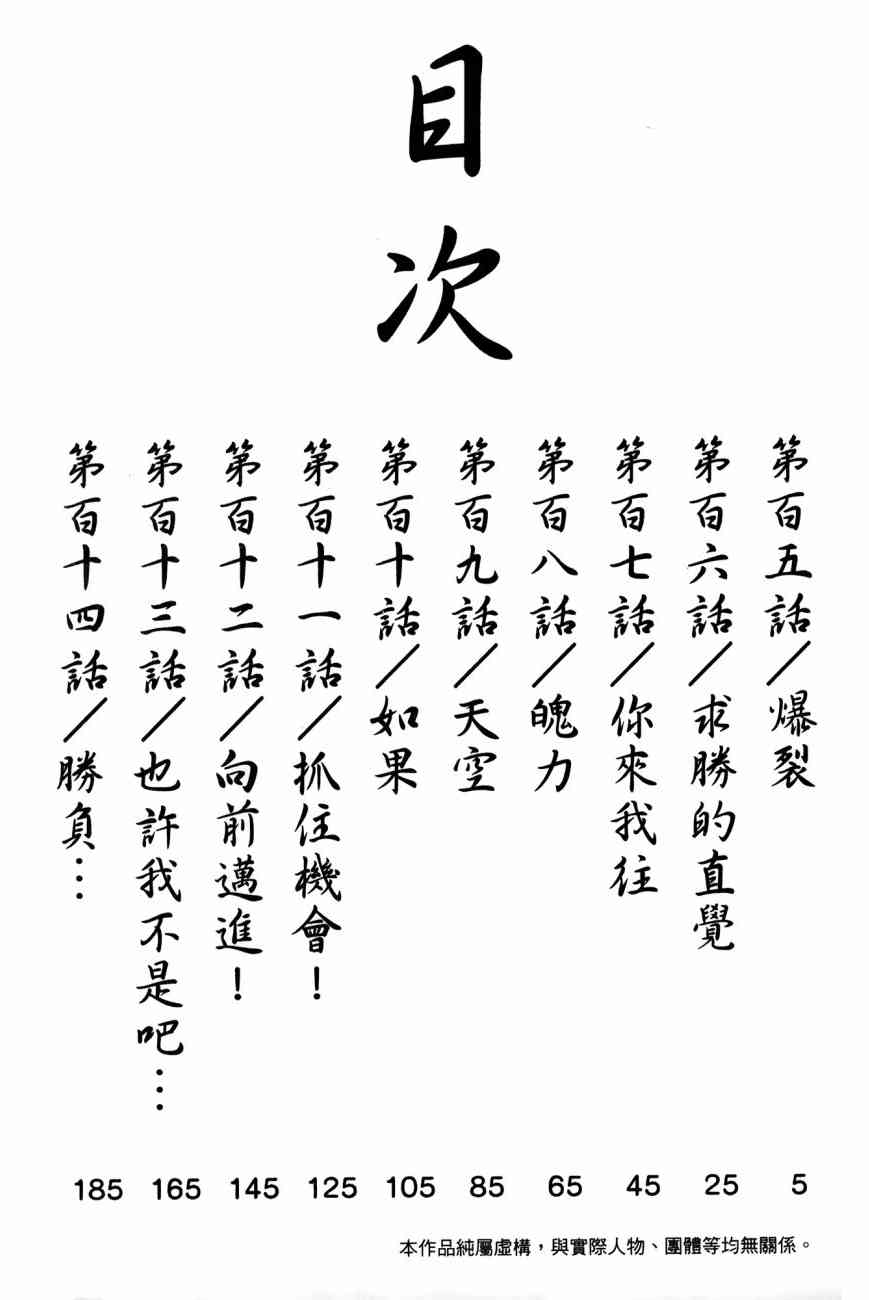 目次
第百五話／爆裂
第百六話／求勝的直覺
第百七話／你來我往
第百八話／魄力
第百九話／天空
第百十話／如果
第百十一話／抓住機會！
第百十二話／向前邁進！
第百十三話／也許我不是吧…
第百十四話／勝負…
5
25
45
65
85
105
125
145
165
185
本作品純屬虛構，與實際人物、團體等均無關係。